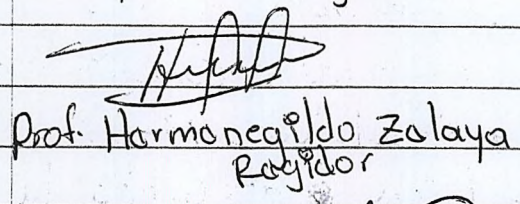 Prof. Hermenegildo Zelaya
Regidor